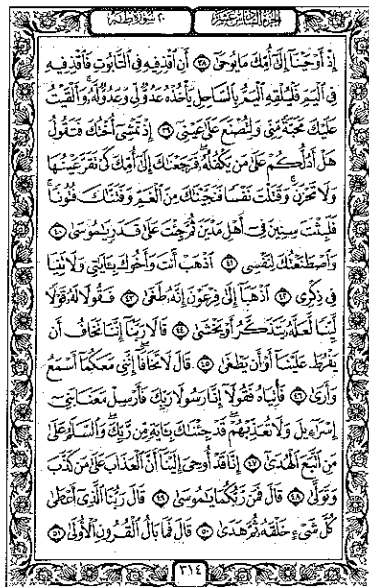 ٢٠ سُورَةُ طه
الجزء السادس عشر
إِذْ أَوْحَيْنَا إِلَىٰ أُمِّكَ مَا يُوحَىٰ ٣٨ أَنِ اقْذِفِيهِ فِي التَّابُوتِ فَاقْذِفِيهِ
فِي الْيَمِّ فَلْيُلْقِهِ الْيَمُّ بِالسَّاحِلِ يَأْخُذْهُ عَدُوٌّ لِّي وَعَدُوٌّ لَّهُ وَأَلْقَيْتُ
عَلَيْكَ مَحَبَّةً مِّنِّي وَلِتُصْنَعَ عَلَىٰ عَيْنِي ٣٩ إِذْ تَمْشِي أُخْتُكَ فَتَقُولُ
هَلْ أَدُلُّكُمْ عَلَىٰ مَن يَكْفُلُهُ فَرَجَعْنَاكَ إِلَىٰ أُمِّكَ كَيْ تَقَرَّ عَيْنُهَا
وَلَا تَحْزَنَ وَقَتَلْتَ نَفْسًا فَنَجَّيْنَاكَ مِنَ الْغَمِّ وَفَتَنَّاكَ فُتُونًا
فَلَبِثْتَ سِنِينَ فِي أَهْلِ مَدْيَنَ ثُمَّ جِئْتَ عَلَىٰ قَدَرٍ يَا مُوسَىٰ ٤٠
وَاصْطَنَعْتُكَ لِنَفْسِي ٤١ اذْهَبْ أَنتَ وَأَخُوكَ بِآيَاتِي وَلَا تَنِيَا
فِي ذِكْرِي ٤٢ اذْهَبَا إِلَىٰ فِرْعَوْنَ إِنَّهُ طَغَىٰ ٤٣ فَقُولَا لَهُ قَوْلًا
لَّيِّنًا لَّعَلَّهُ يَتَذَكَّرُ أَوْ يَخْشَىٰ ٤٤ قَالَا رَبَّنَا إِنَّنَا نَخَافُ أَن
يَفْرُطَ عَلَيْنَا أَوْ أَن يَطْغَىٰ ٤٥ قَالَ لَا تَخَافَا إِنَّنِي مَعَكُمَا أَسْمَعُ
وَأَرَىٰ ٤٦ فَأْتِيَاهُ فَقُولَا إِنَّا رَسُولَا رَبِّكَ فَأَرْسِلْ مَعَنَا بَنِي
إِسْرَائِيلَ وَلَا تُعَذِّبْهُمْ قَدْ جِئْنَاكَ بِآيَةٍ مِّن رَّبِّكَ وَالسَّلَامُ عَلَىٰ
مَنِ اتَّبَعَ الْهُدَىٰ ٤٧ إِنَّا قَدْ أُوحِيَ إِلَيْنَا أَنَّ الْعَذَابَ عَلَىٰ مَن كَذَّبَ
وَتَوَلَّىٰ ٤٨ قَالَ فَمَن رَّبُّكُمَا يَا مُوسَىٰ ٤٩ قَالَ رَبُّنَا الَّذِي أَعْطَىٰ
كُلَّ شَيْءٍ خَلْقَهُ ثُمَّ هَدَىٰ ٥٠ قَالَ فَمَا بَالُ الْقُرُونِ الْأُولَىٰ ٥١
٣١٤